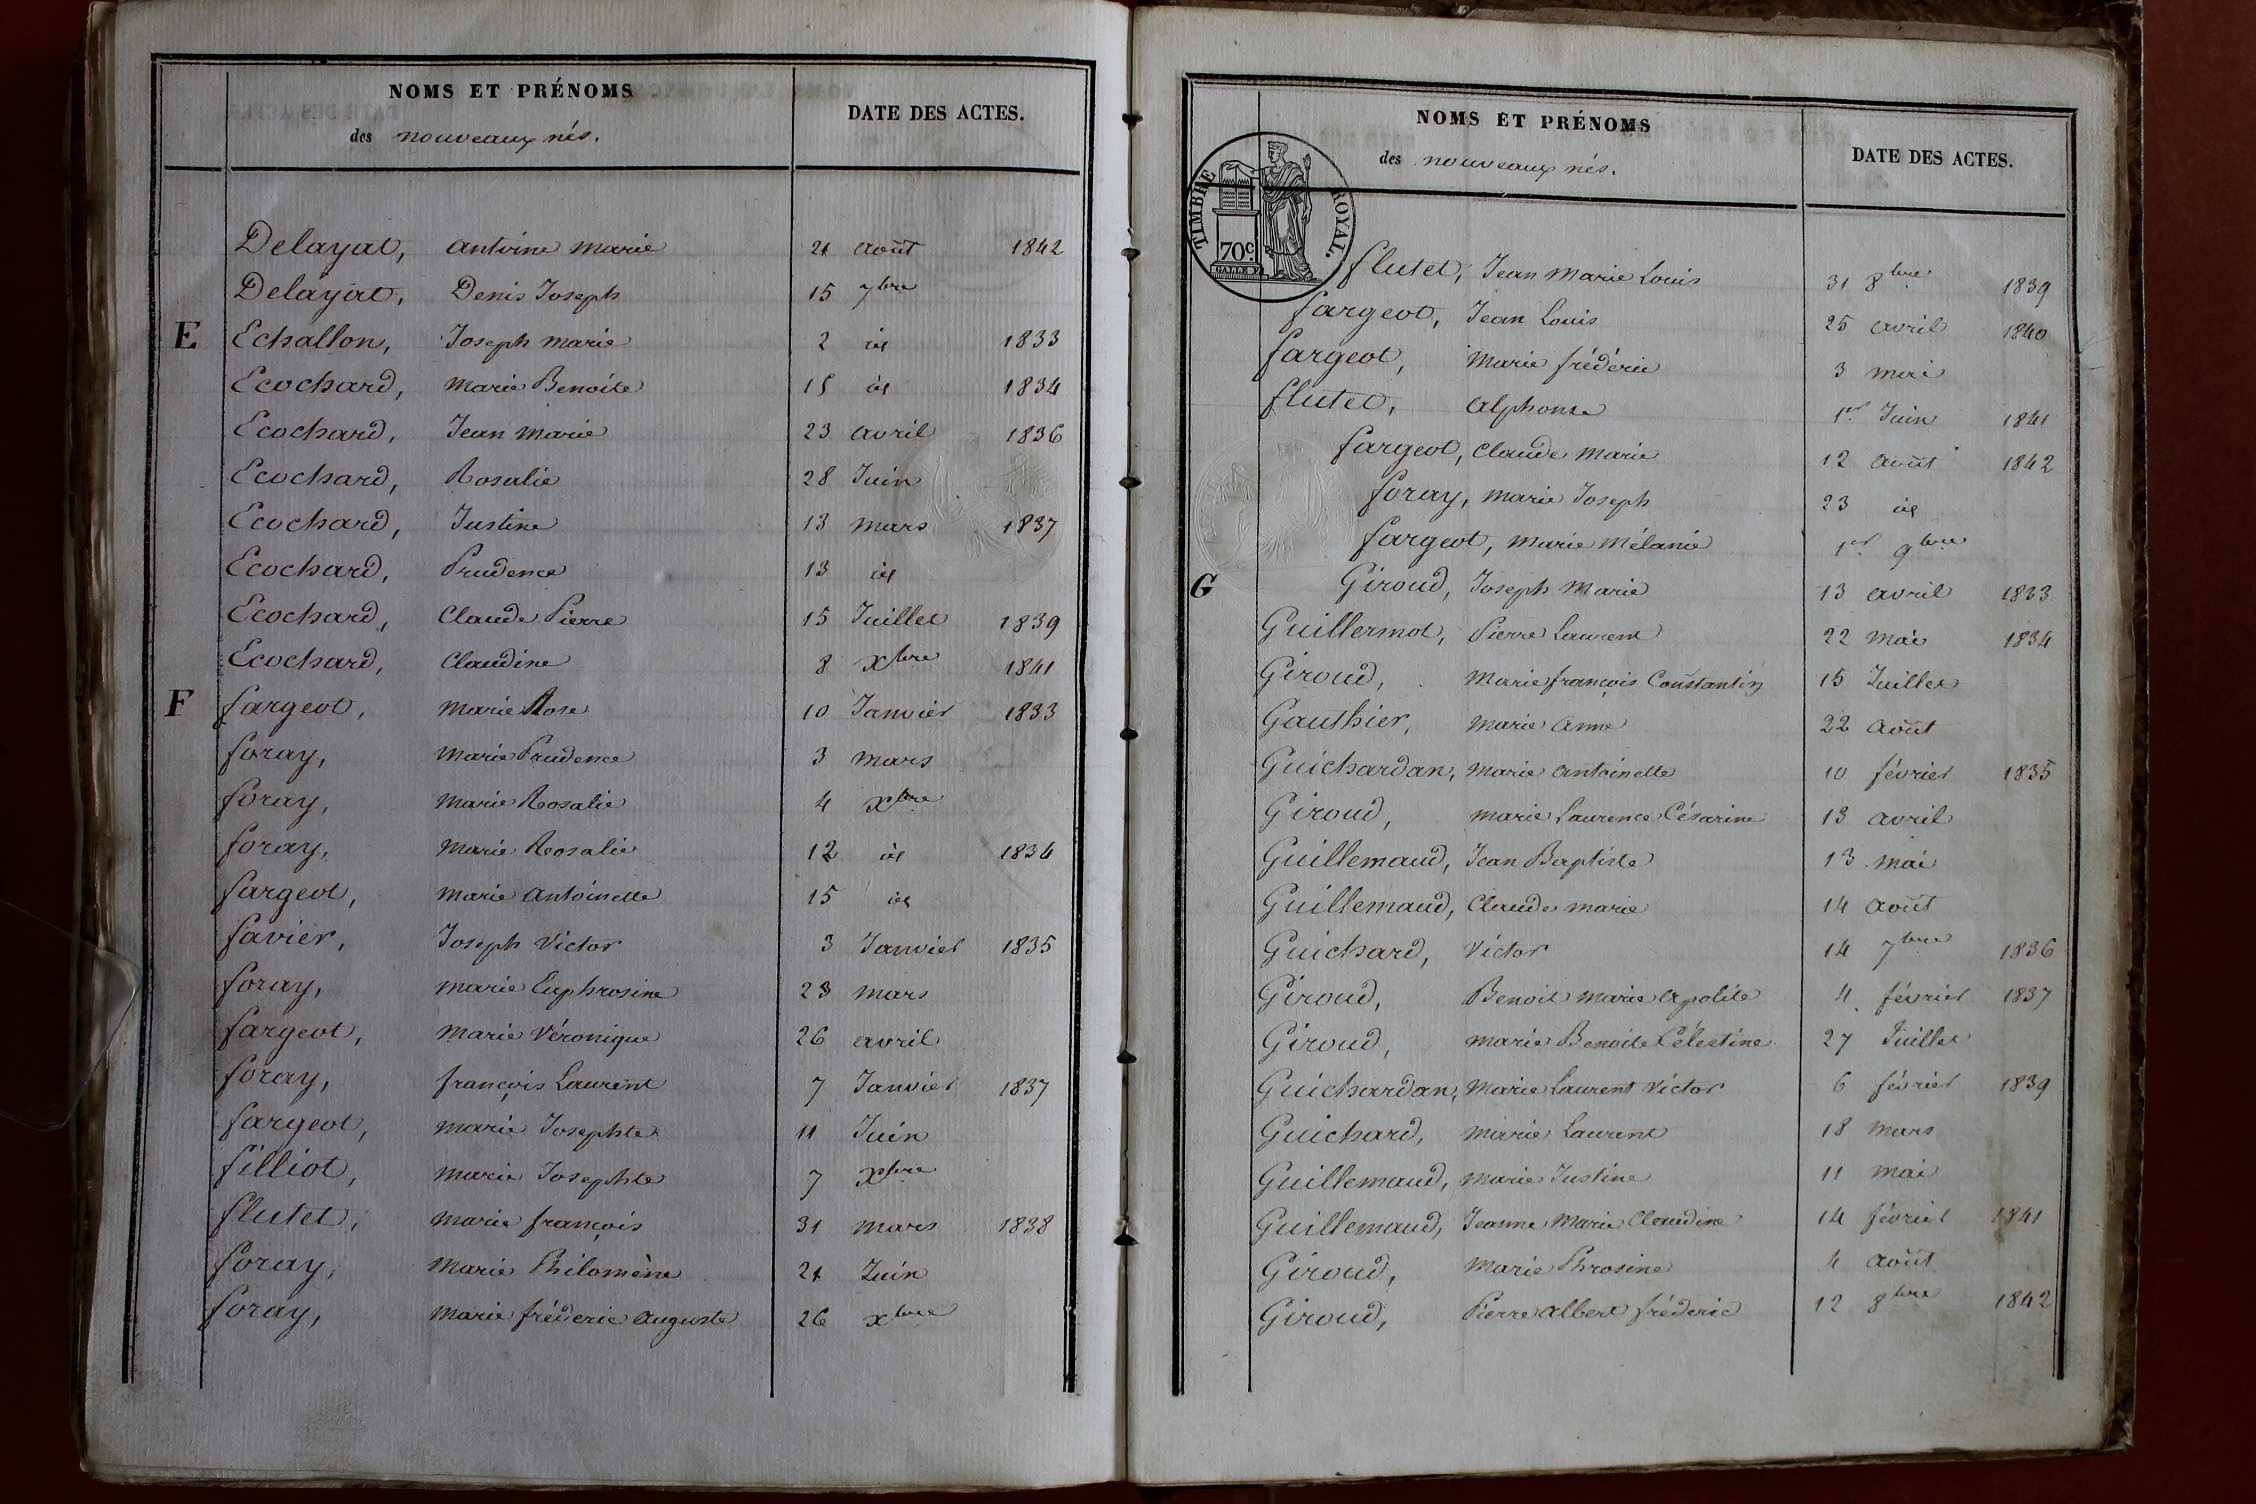 NOMS ET PRÉNOMS
des nouveaux nés.
DATE DES ACTES.
Delayat, antoine marie 21 août 1842
Delayat, Denis Joseph 15 7bre
E Echallon, Joseph marie 2 id 1833
Ecochard, marie Benoite 15 id 1834
Ecochard, Jean marie 23 avril 1836
Ecochard, Rosalie 28 Juin
Ecochard, Justine 13 mars 1837
Ecochard, Prudence 13 id
Ecochard, Claude Pierre 15 Juillet 1839
Ecochard, Claudine 8 Xbre 1841
F fargeot, marie Rose 10 Janvier 1833
foray, marie Prudence 3 mars
foray, marie Rosalie 4 Xbre
foray, marie Rosalie 12 id 1834
fargeot, marie antoinette 15 id
favier, Joseph victor 3 Janvier 1835
foray, marie Euphrosine 23 mars
fargeot, marie Véronique 26 avril
foray, françois Laurent 7 Janvier 1837
fargeot, marie Josephte 11 Juin
filliot, marie Josephte 7 Xbre
flutet, marie françois 31 mars 1838
foray, marie Philomène 21 Juin
foray, marie fréderic auguste 26 Xbre
NOMS ET PRÉNOMS
des nouveaux nés.
DATE DES ACTES.
TIMBRE ROYAL.
70c.
flutet, Jean marie Louis 31 8bre 1839
fargeot, Jean Louis 25 avril 1840
fargeot, marie fréderic 3 mai
flutet, alphonse 1er Juin 1841
fargeot, Claude marie 12 août 1842
foray, marie Joseph 23 id
fargeot, marie mélanie 1er 9bre
G Giroud, Joseph marie 13 avril 1833
Guillermot, Pierre Laurent 22 mai 1834
Giroud, marie françois Constantin 15 Juillet
Gauthier, marie anne 22 août
Guichardan, marie antoinette 10 février 1835
Giroud, marie Laurence Césarine 13 avril
Guillemaud, Jean Baptiste 13 mai
Guillemaud, Claude marie 14 août
Guichard, victor 14 7bre 1836
Giroud, Benoit marie apolite 4 février 1837
Giroud, marie Benoite Célestine 27 Juillet
Guichardan, marie Laurent victor 6 février 1839
Guichard, marie Laurent 18 mars
Guillemaud, marie Justine 11 mai
Guillemaud, Jeanne marie Claudine 14 février 1841
Giroud, marie Phrosine 4 août
Giroud, Pierre albert fréderic 12 8bre 1842